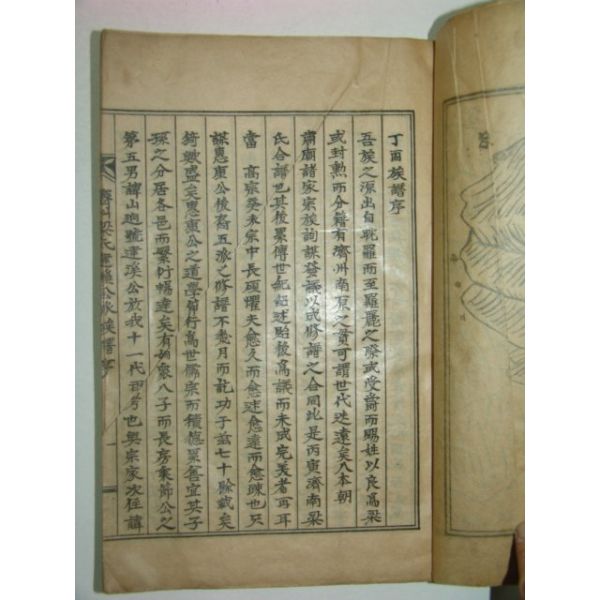 丁酉族譜序
吾族之源出自耽羅而至羅麗之際或受爵而賜姓以良高梁
或封勳而分籍有濟州南原之貫可謂世代迭遠矣入本朝
肅廟諸家宗族詢謀發議以成修譜之合同此是丙寅濟南梁
氏合譜也其後累傳世紀誌述貽後高議而未成完美者再耳
當 高宗癸未宗中長碩懼夫愈久而愈迷愈遠而愈踈也只
謀惠康公後裔五派之修譜不幾月而訖功于茲七十餘載矣
猗歟盛矣惠康公之道學節行爲世儒宗而積德累善宜其子
孫之分居各邑而繁衍暢達矣有胤衆八子而長房秉節公之
第五男諱山逈號蓮溪公放我十一代祖考也與宗家次侄諱